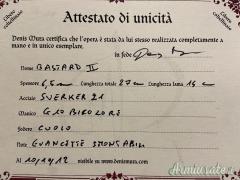 Attestato di unicità
Denis Mura certifica che l'opera è stata da lui stesso realizzata completamente a
mano e in unico esemplare.
in fede
Nome BASTARD II
Spessore 6,5mm Lunghezza totale 27cm Lunghezza lama 15cm
Acciaio SVERKER 21
Manico G10 BICOLORE
Fodero CUOIO
Note GUANCETTE SMONTABILI
10/10/12 visibile su www.denismura.com
Armiusate.it